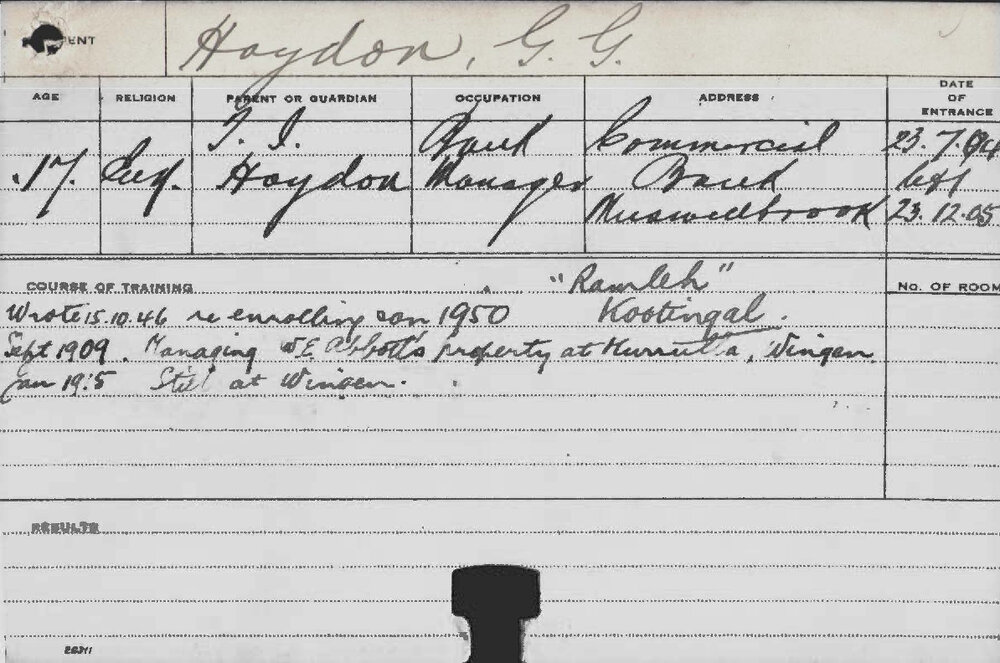 ENT
Haydon, G. G.
AGE RELIGION PARENT OR GUARDIAN OCCUPATION ADDRESS DATE OF ENTRANCE
T. I. Bank Commercial 23.7.04
17. Eng. Haydon Manager Bank left
Muswellbrook 23.12.05
COURSE OF TRAINING "Ramleh" No. OF ROOM
Wrote 15.10.46 re enrolling son 1950 Kootingal.
Sept 1909. Managing Abbott's property at Murrulla, Wingen
Jan 19 5 Still at Wingen.
RESULTS